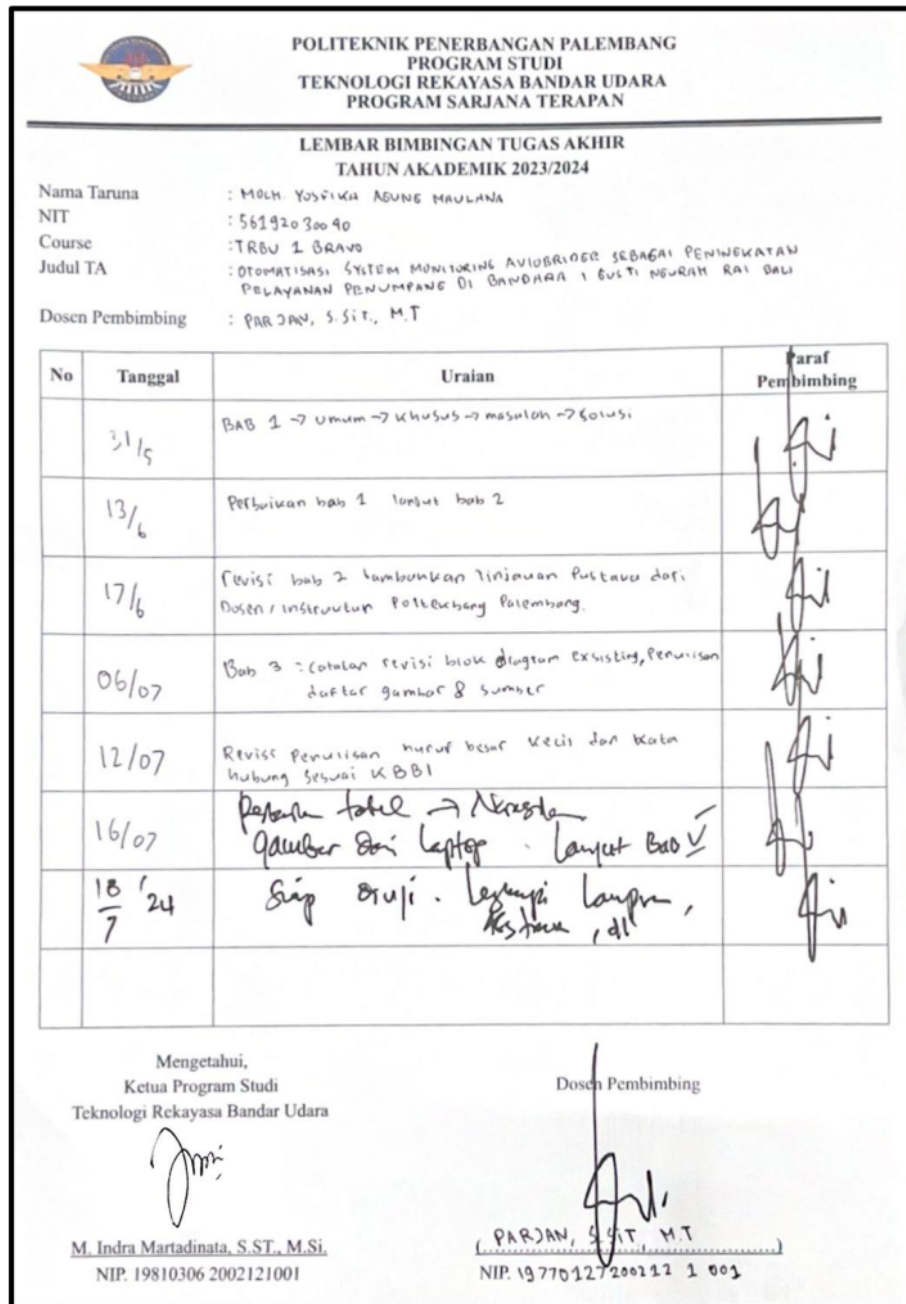 POLITEKNIK PENERBANGAN PALEMBANG
PROGRAM STUDI
TEKNOLOGI REKAYASA BANDAR UDARA
PROGRAM SARJANA TERAPAN
LEMBAR BIMBINGAN TUGAS AKHIR
TAHUN AKADEMIK 2023/2024
Nama Taruna : MOCH. YUSFIKH AGUNG MAULANA
NIT : 56192030040
Course : TRBU 1 BRAVO
Judul TA : OTOMATISASI SYSTEM MONITORING AVIOBRIDGE SEBAGAI PENINGKATAN
PELAYANAN PENUMPANG DI BANDARA I GUSTI NGURAH RAI BALI
Dosen Pembimbing : PARJAN, S.SiT., M.T
No Tanggal Uraian Paraf
Pembimbing
31/5 BAB 1 → umum → khusus → masalah → solusi
13/6 Perbaikan bab 1 lanjut bab 2
17/6 revisi bab 2 tambahkan tinjauan Pustaka dari
Dosen / instruktur Poltekbang Palembang.
06/07 Bab 3 : Catatan revisi blok diagram exsisting, Penulisan
daftar gambar & sumber
12/07 Revisi Penulisan huruf besar kecil dan kata
hubung sesuai KBBI
16/07 tabel →
gambar dari laptop . Lanjut Bab V
18/7 '24 Siap diuji . Lengkapi
, dll
Mengetahui,
Ketua Program Studi
Teknologi Rekayasa Bandar Udara
M. Indra Martadinata, S.ST., M.Si.
NIP. 19810306 2002121001
Dosen Pembimbing
( PARJAN, S.SiT M.T )
NIP. 19770127200212 1 001